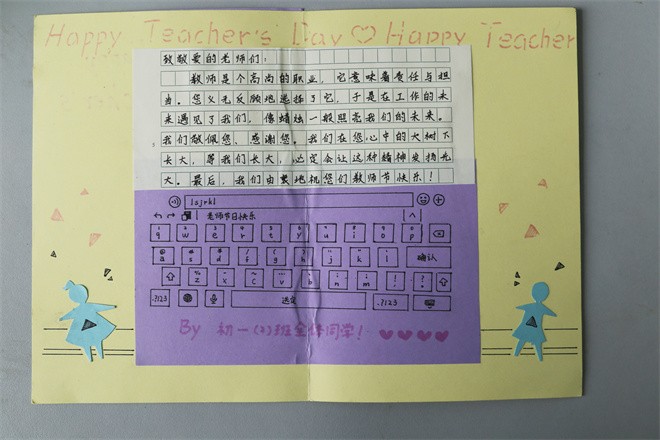 Happy Teacher's Day ♡ Happy Teacher
致敬爱的老师们：
教师是个高尚的职业，它意味着责任与担
当。您义无反顾地选择了它，于是在工作的未
来遇见了我们，像蜡烛一般照亮我们的未来。
我们敬佩您，感谢您。我们在您心中的大树下
长大，等我们长大，必定会让这种精神发扬光
大。最后，我们由衷地祝您们教师节快乐！
lsjrkl
老师节日快乐
q w e r t y u i o p
@ # / ( ) " '
a s d f g h j k l 确认
z x c v b n m ! ?
.?123 送定 .?123
By 初一(2)班全体同学！